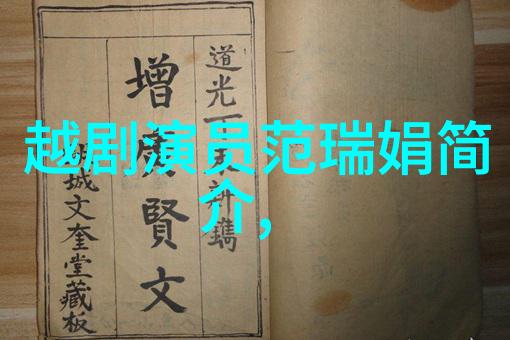 越剧演员范瑞娟简
介,
道光新鐫
增廣賢文
城文奎堂藏板